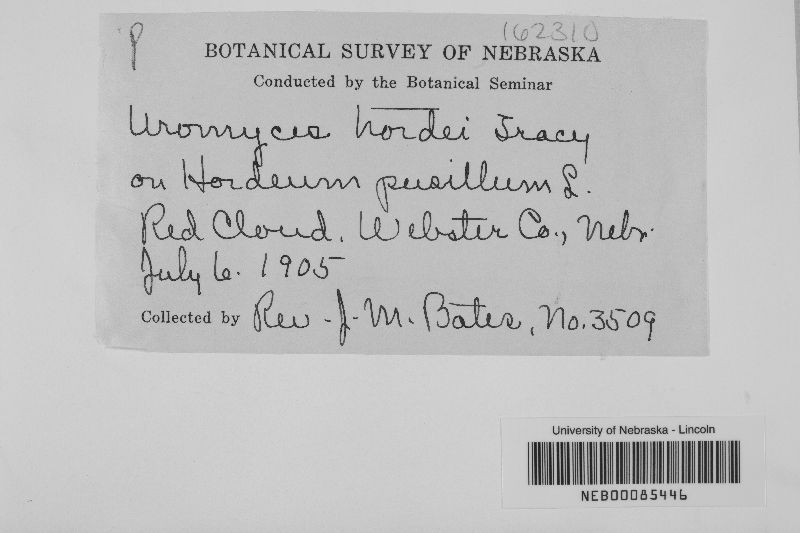 P
162310
BOTANICAL SURVEY OF NEBRASKA
Conducted by the Botanical Seminar
Uromyces hordei Tracy
on Hordeum pusillum L.
Red Cloud, Webster Co., Nebr.
July 6. 1905
Collected by Rev. J. M. Bates, No. 3509
University of Nebraska - Lincoln
NEB00085446